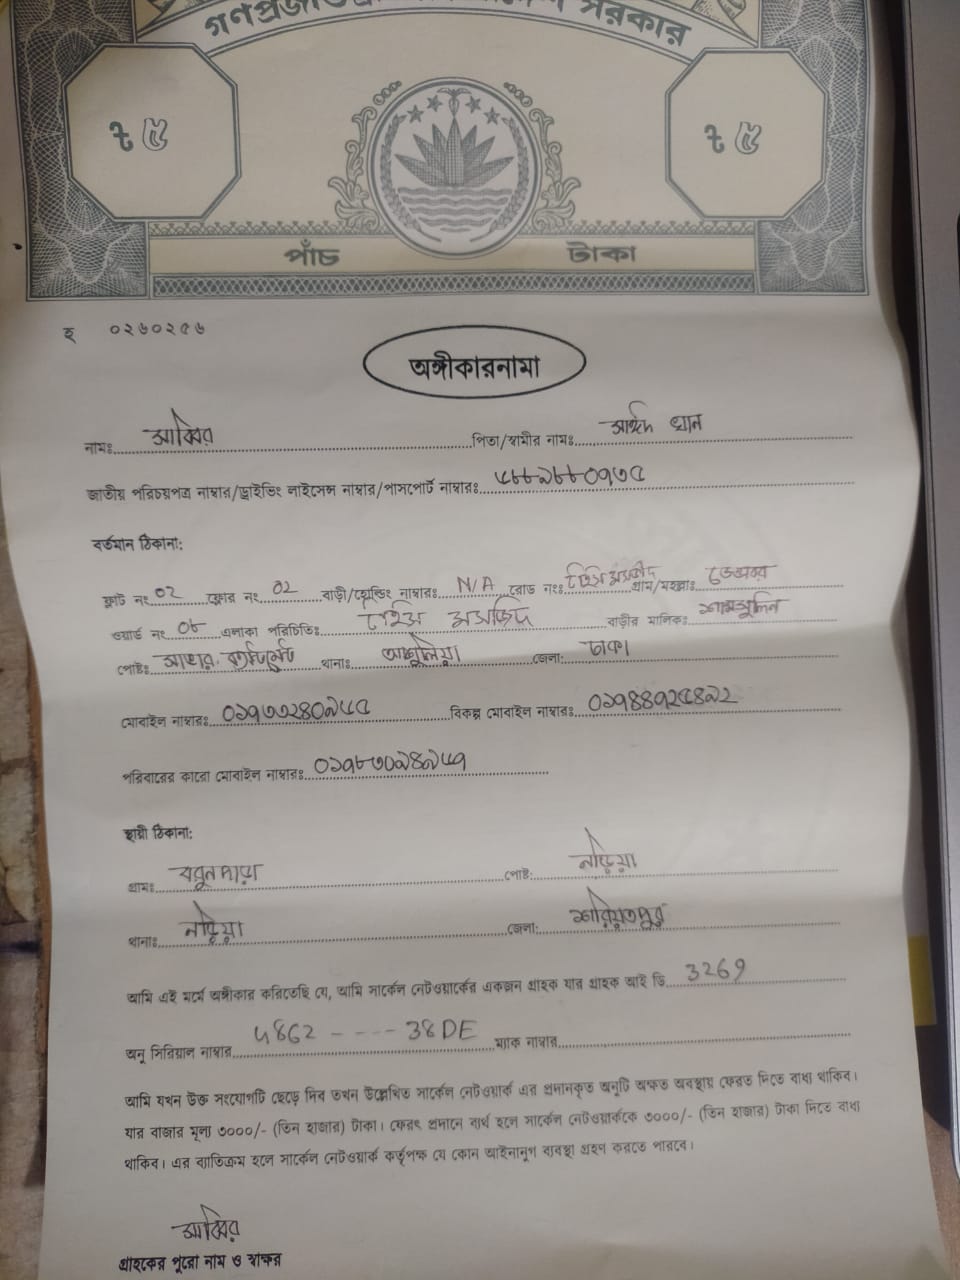 গণপ্রজাতন্ত্রী বাংলাদেশ সরকার
৳ ৫ ৳ ৫
পাঁচ টাকা
হ ০২৬০২৫৬
অঙ্গীকারনামা
নামঃ সাব্বির পিতা/স্বামীর নামঃ খান
জাতীয় পরিচয়পত্র নাম্বার/ড্রাইভিং লাইসেন্স নাম্বার/পাসপোর্ট নাম্বারঃ
বর্তমান ঠিকানা:
ফ্লাট নং ০২ ফ্লোর নং ০২ বাড়ী/হোল্ডিং নাম্বারঃ N/A রোড নংঃ গ্রাম/মহল্লাঃ
ওয়ার্ড নং ০৮ এলাকা পরিচিতিঃ মসজিদ বাড়ীর মালিকঃ
পোষ্টঃ থানাঃ আশুলিয়া জেলা: ঢাকা
মোবাইল নাম্বারঃ বিকল্প মোবাইল নাম্বারঃ
পরিবারের কারো মোবাইল নাম্বারঃ
স্থায়ী ঠিকানা:
গ্রামঃ পোষ্ট: নড়িয়া
থানাঃ নড়িয়া জেলা: শরিয়তপুর
আমি এই মর্মে অঙ্গীকার করিতেছি যে, আমি সার্কেল নেটওয়ার্কের একজন গ্রাহক যার গ্রাহক আই ডি 3269
অনু সিরিয়াল নাম্বার 4862 ---- 38DE ম্যাক নাম্বার
আমি যখন উক্ত সংযোগটি ছেড়ে দিব তখন উল্লেখিত সার্কেল নেটওয়ার্ক এর প্রদানকৃত অনুটি অক্ষত অবস্থায় ফেরত দিতে বাধ্য থাকিব।
যার বাজার মূল্য ৩০০০/- (তিন হাজার) টাকা। ফেরৎ প্রদানে ব্যর্থ হলে সার্কেল নেটওয়ার্ককে ৩০০০/- (তিন হাজার) টাকা দিতে বাধ্য
থাকিব। এর ব্যতিক্রম হলে সার্কেল নেটওয়ার্ক কর্তৃপক্ষ যে কোন আইনানুগ ব্যবস্থা গ্রহণ করতে পারবে।
সাব্বির
গ্রাহকের পুরো নাম ও স্বাক্ষর